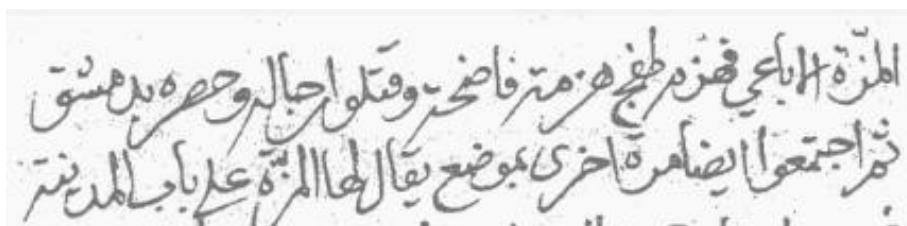 المزّة الاباعي فهزم طغج هزمة فاضحة وقتلوا رجاله وحصره بدمشق
ثم اجتمعوا ايضا مرة اخرى بموضع يقال لها المزّة على باب المدينة